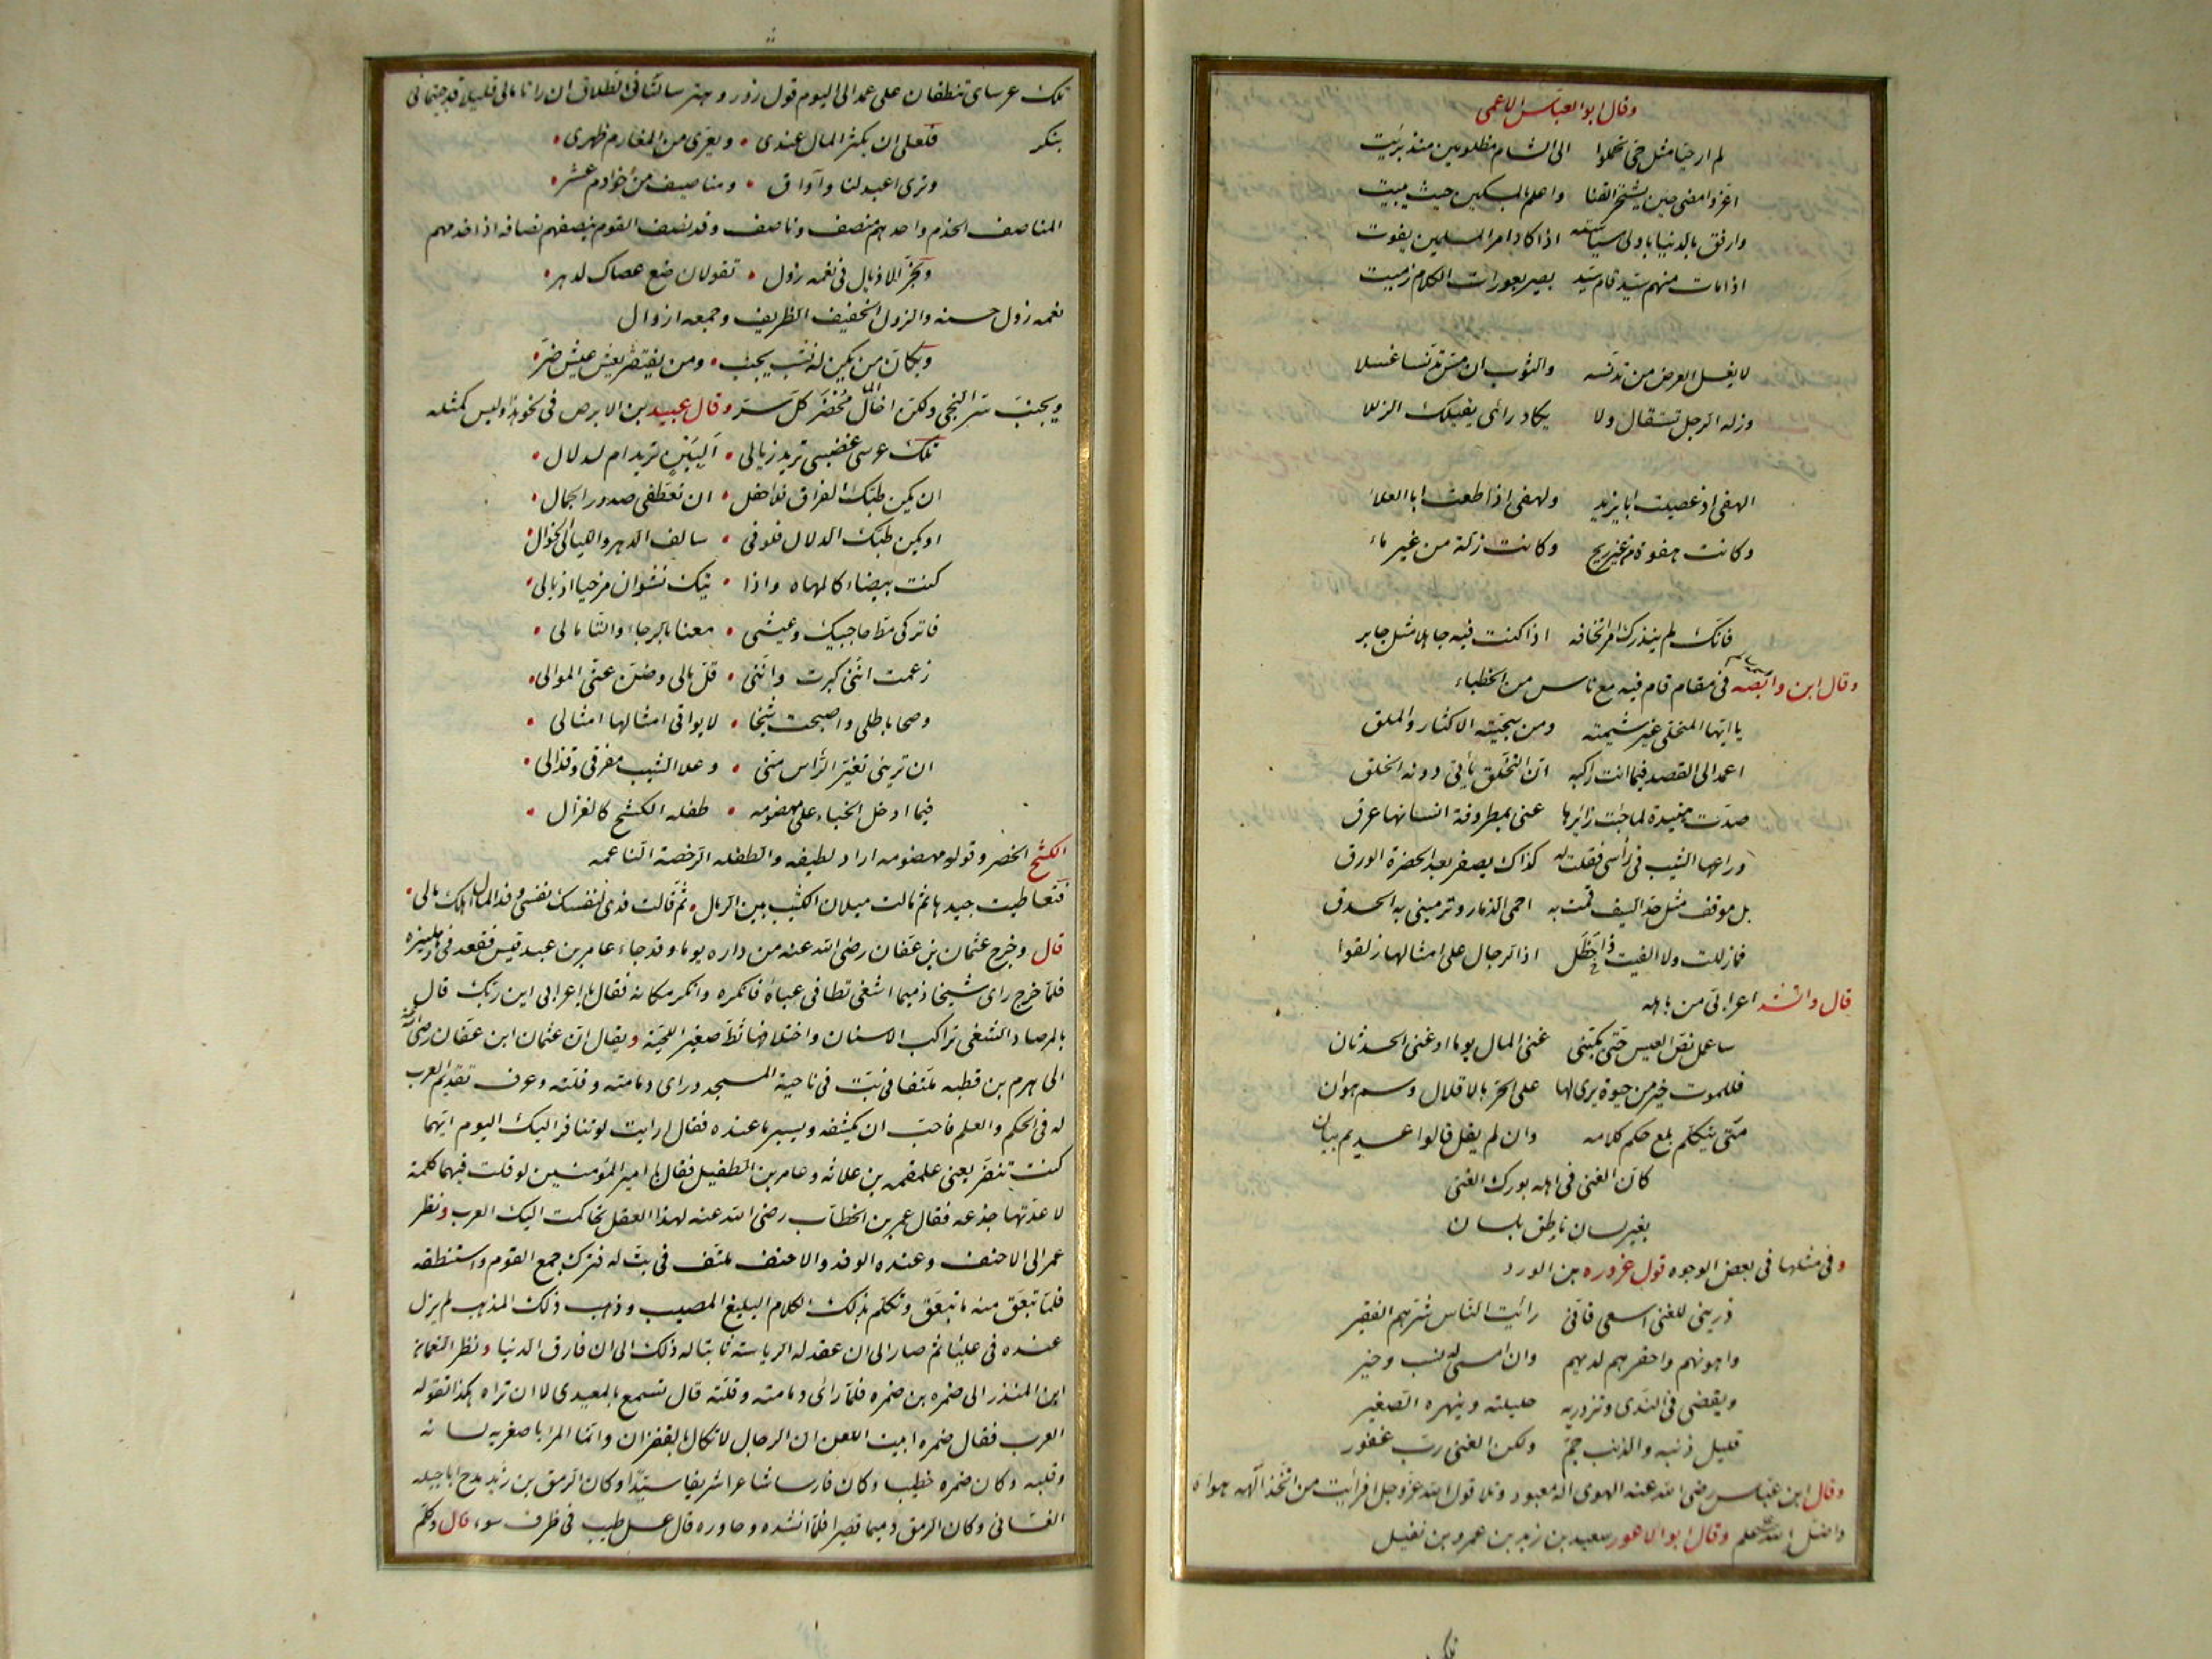 وقال ابو العباس الاعمى
لم ار حيا مثل حى تحملوا الى الشام مظلومين منذ بريت
اعز وامضى حين يشتجر القنا واعلم بالمسكين حيث يبيت
وارفق بالدنيا باولى سياسه اذا كاد امر المسلمين يفوت
اذا مات منهم سيد قام سيد بصير بعورات الكلام زميت
لا يغسل العرض من تدنسه والثوب ان مس تدنسا غسلا
وزله الرجل تستقال ولا يكاد رأى يقيلك الزللا
الهفى اذ عصيت ابا يزيد ولهفى اذ اطعت ابا العلاء
وكانت هفوة من غير ريح وكانت زلة من غير ماء
فانك لم ينذرك امر اتخافه اذا كنت فيه جاهلا مثل جابر
وقال ابن وابصه فى مقام قام فيه مع ناس من الخطباء
يا ايها المتحلى غير شيمته ومن سجيته الاكثار والملق
اعمد الى القصد فيما انت راكبه ان التخلق يأتى دونه الخلق
صدت هنيدة لما جئت زائرها عنى بمطروفة انسانها غرق
وراعها الشيب فى رأسى فقلت له كذاك يصفر بعد الخضرة الورق
بل موقف مثل حد السيف قمت به احمى الذمار وترمينى به الحدق
فما زللت ولا الفيت ذا خطل اذا الرجال على امثالها زلقوا
قال وانشد اعرابى من باهله
ساعمل نص العيس حتى يكفنى غنى المال يوما او غنى الحدثان
فللموت خير من حيوة يرى لها على الحر بالاقلال وسم هوان
متى يتكلم يلغ حكم كلامه وان لم يقل قالوا عديم بيان
كان الغنى فى اهله بورك الغنى
بغير لسان ناطق بلسان
وفى مثلها فى بعض الوجوه قول عروه بن الورد
ذرينى للغنى اسعى فانى رايت الناس شرهم الفقير
واهونهم واحقرهم لديهم وان امسى له نسب وخير
ويقضى فى الندى وتزدريه حليلته وينهره الصغير
قليل ذنبه والذنب جم ولكن الغنى رب غفور
وقال ابن عباس رضى الله عنه الهوى اله معبود وتلا قول الله عز وجل افرأيت من اتخذ الهه هواه
واضله الله على علم وقال ابو الاعور سعيد بن زيد بن عمرو بن نفيل
تلك عرساى تنطقان على عمد الى اليوم قول زور وهتر سالتانى الطلاق ان راتا مالى قليلا قد جئتمانى
بنكر فلعلى ان يكثر المال عندى ويعرى من المغارم ظهرى
وترى اعبد لنا واواق ومناصيف من خوادم عشر
المناصف الخدم واحدهم منصف وناصف وقد نصف القوم ينصفهم نصافه اذا خدمهم
وتجر الاذيال فى نعمه زول تقولان ضع عصاك لدهر
نعمه زول حسنه والزول الخفيف الظريف وجمعه ازوال
ويكان من يكن له نشب يحبب ومن يفتقر يعش عيش ضر
ويجنب سر النجى ولكن اخا المال محضر كل سر وقال عبيد بن الابرص فى نحو هذا وليس كمثله
تلك عرسى غضبى تريد زيالى البين تريد ام لدلال
ان يكن طبك الفراق فلا احفل ان تعطفى صدور الجمال
او يكن طبك الدلال فلو فى سالف الدهر والليالى الخوال
كنت بيضاء كالمهاه واذا اتيك نشوان مرخيا اذيالى
فاتركى مط حاجبيك وعيشى معنا بالرجاء والتامالى
زعمت اننى كبرت واننى قل مالى وضن عنى الموالى
وصحا باطلى واصبحت شيخا لا يواتى امثالها امثالى
ان ترينى تغير الرأس منى وعلا الشيب مفرقى وقذالى
فبما ادخل الخباء على مهضومه طفله الكشح كالغزال
الكشح الخصر وقوله مهضومه اراد لطيفه والطفله الرخصة الناعمه
فتعاطيت جيدها ثم مالت ميلان الكثيب بين الرمال ثم قالت فدى لنفسك نفسى وفدا لمال اهلك مالى
قال وخرج عثمان بن عفان رضى الله عنه من داره يوما وقد جاء عامر بن عبد قيس فقعد فى دهليزه
فلما خرج راى شيخا ذميما اشغى ثطا فى عباءة فانكره وانكر مكانه فقال يا اعرابى اين ربك قال
بالمرصاد الشغى تراكب الاسنان واختلافها ثط صغير اللحية ويقال ان عثمان ابن عفان رضى الله عنه
الى هرم بن قطبه ملتفا فى بت فى ناحية المسجد وراى دمامته وقلته وعرف تقديم العرب
له فى الحكم والعلم فاحب ان يكشفه ويسبر ما عنده فقال ارايت لو تنافرا اليك اليوم ايهما
كنت تنفر يعنى علقمه بن علاثه وعامر بن الطفيل فقال يا امير المؤمنين لو قلت فيهما كلمة
لاعدتها جذعه فقال عمر بن الخطاب رضى الله عنه لهذا العقل تحاكمت اليك العرب ونظر
عمر الى الاحنف وعنده الوفد والاحنف ملتف فى بت له فترك جمع القوم واستنطقه
فلما تبعق منه ما تبعق وتكلم بذلك الكلام البليغ المصيب وذهب ذلك المذهب لم يزل
عنده فى علياء ثم صار الى ان عقد له الرياسة ثابتا له ذلك الى ان فارق الدنيا ونظر النعمان
ابن المنذر الى ضمره بن ضمره فلما راى دمامته وقلته قال تسمع بالمعيدى لا ان تراه هكذا تقوله
العرب فقال ضمره ابيت اللعن ان الرجال لا تكال بالقفزان وانما المرا باصغريه لسانه
وقلبه وكان ضمره خطيبا وكان فارسا شاعرا شريفا سيدا وكان الرمق بن زيد مدح ابا جبيله
الغسانى وكان الرمق دميما قصيرا فلما انشده وحاوره قال عسل طيب فى ظرف سوء قال وكلم